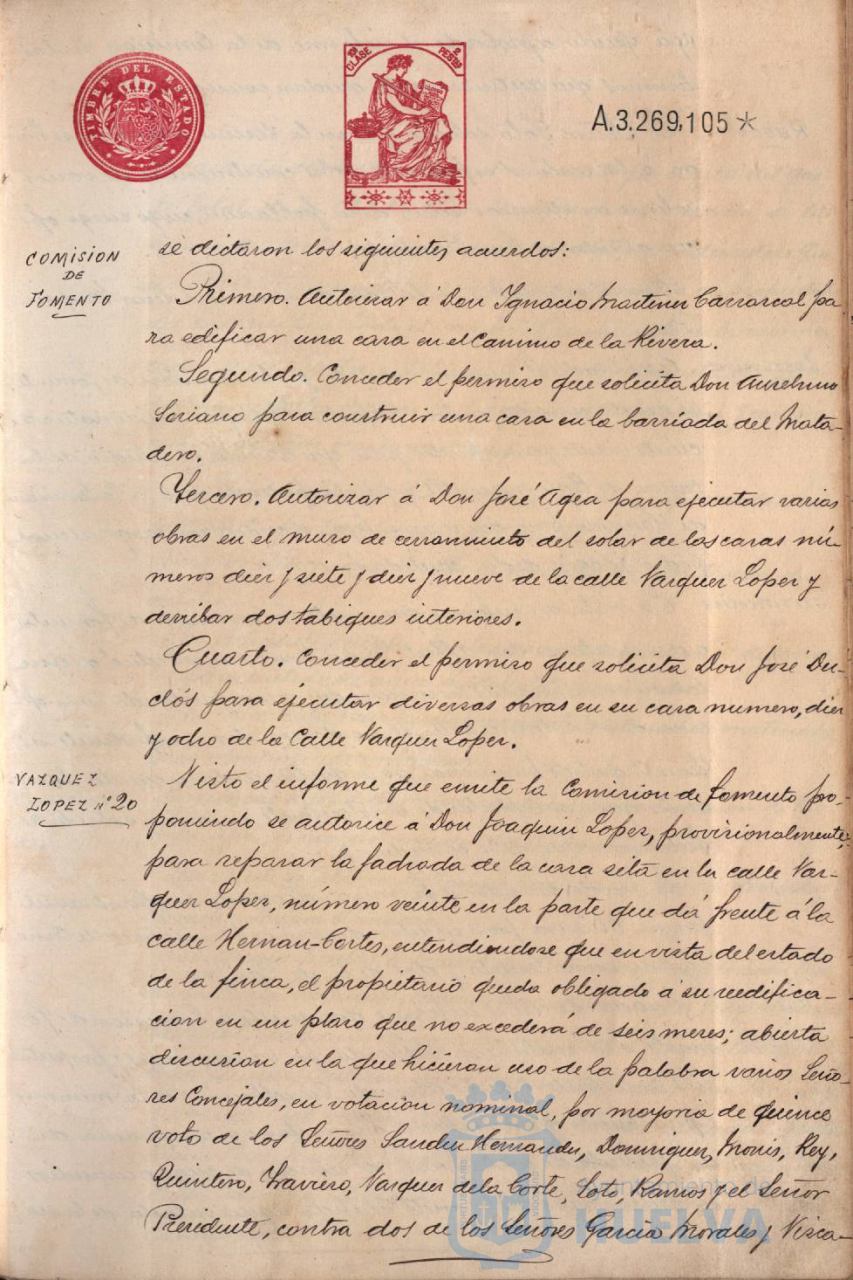 TIMBRE DEL ESTADO
10ª CLASE 2 PESETAS
A.3,269,105 *
COMISION
DE
FOMENTO
se dictaron los siguientes acuerdos:
Primero. Autorizar á Don Ignacio Martinez Carrascal pa
ra edificar una casa en el Camino de la Rivera.
Segundo. Conceder el permiso que solicita Don Aureliano
Soriano para construir una casa en la barriada del Mata-
dero.
Tercero. Autorizar á Don José Agea para ejecutar varias
obras en el muro de cerramiento del solar de las casas nú-
meros diez y siete y diez y nueve de la calle Vazquez Lopez y
derribar dos tabiques interiores.
Cuarto. Conceder el permiso que solicita Don José Du-
clós para ejecutar diversas obras en su casa numero, diez
y ocho de la Calle Vazquez Lopez.
VAZQUEZ
LOPEZ nº 20
Visto el informe que emite la Comision de fomento pro-
poniendo se autorice á Don Joaquin Lopez, provisionalmente,
para reparar la fachada de la casa sita en la calle Vaz-
quez Lopez, número veinte en la parte que dá frente á la
calle Hernan-Cortes, entendiendose que en vista del estado
de la finca, el propietario queda obligado á su reedifica-
cion en un plazo que no excederá de seis meses; abierta
discusion en la que hicieran uso de la palabra varios Seño-
res Concejales, en votacion nominal, por mayoria de quince
voto de los Señores Sanchez Hernandez, Dominguez, Monis, Rey,
Quintero, Traviero, Vazquez de la Corte, Soto, Ramos y el Señor
Presidente, contra dos de los Señores García Morales y Visca-
Ayuntamiento de
HUELVA